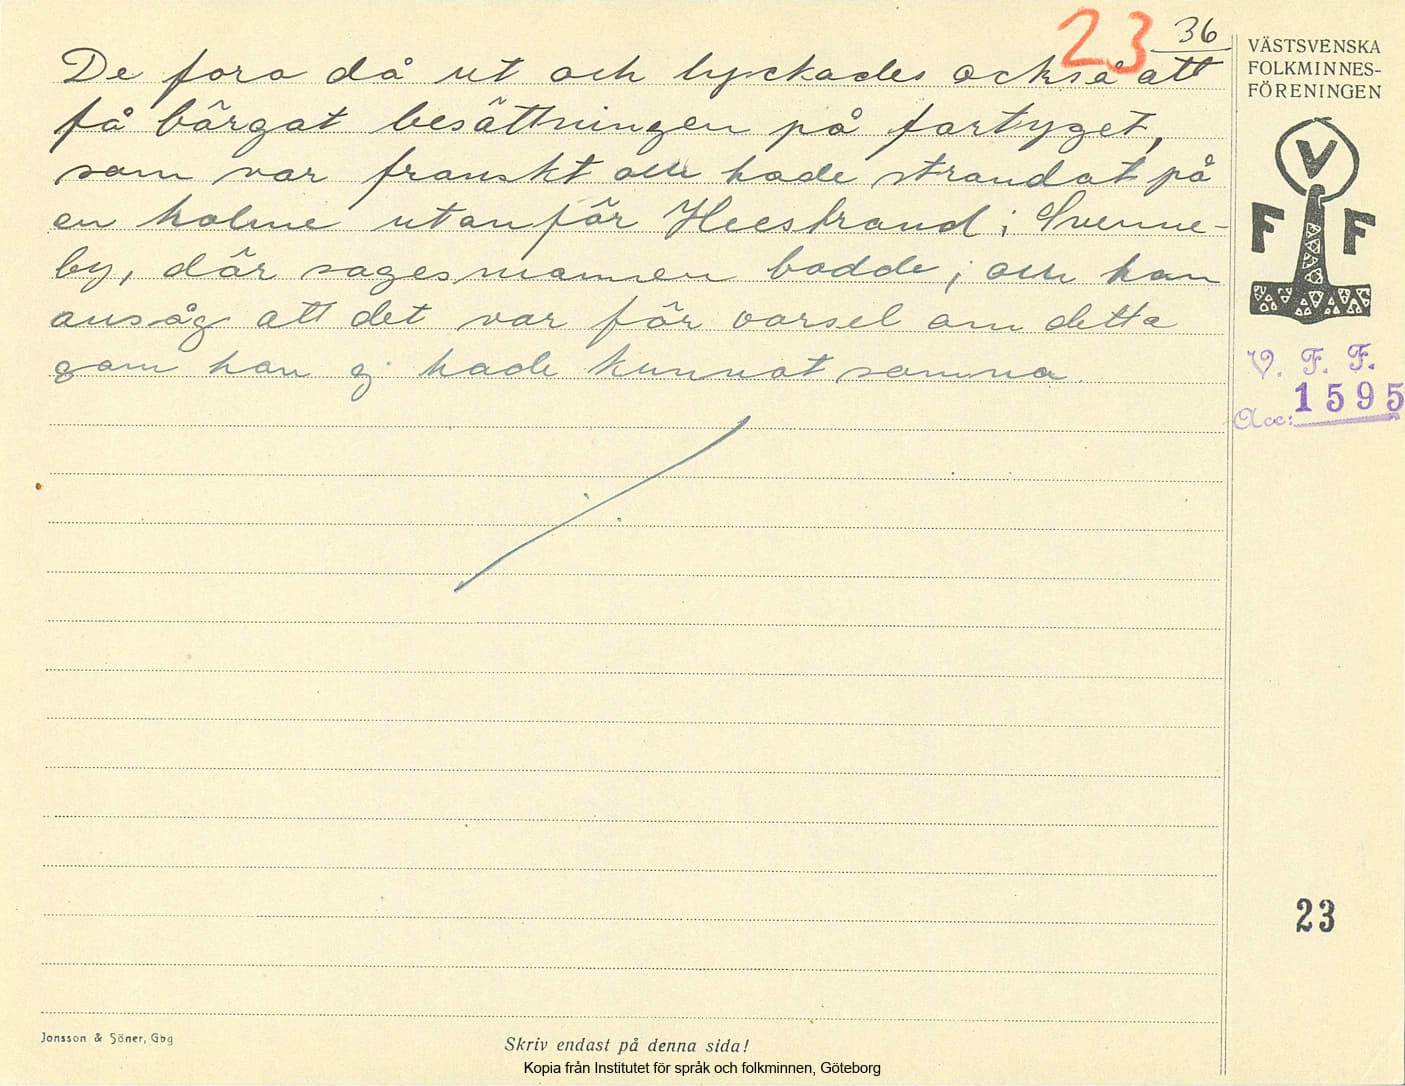 23 36
De foro då ut och lyckades också att
få bärgat besättningen på fartyget,
som var franskt och hade strandat på
en holme utanför Heestrand i Svenne-
by, där sagesmannen bodde; och han
ansåg att det var för varsel om detta
som han ej hade kunnat somna.
VÄSTSVENSKA
FOLKMINNES-
FÖRENINGEN
V
F F
V. F. F.
Acc: 1595
23
Jonsson & Söner, Gbg
Skriv endast på denna sida!
Kopia från Institutet för språk och folkminnen, Göteborg